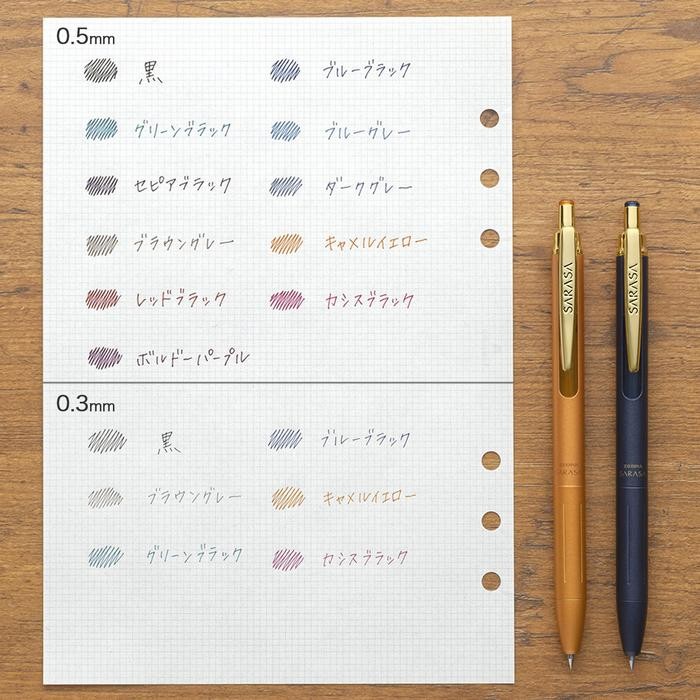 0.5mm
黒 ブルーブラック
グリーンブラック ブルーグレー
セピアブラック ダークグレー
ブラウングレー キャメルイエロー
レッドブラック カシスブラック
ボルドーパープル
0.3mm
黒 ブルーブラック
ブラウングレー キャメルイエロー
グリーンブラック カシスブラック
SARASA
ZEBRA
SARASA
SARASA
ZEBRA
SARASA